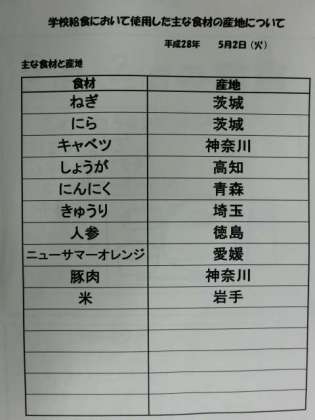 学校給食において使用した主な食材の産地について
平成28年　5月2日（火）
主な食材と産地
食材　産地
ねぎ　茨城
にら　茨城
キャベツ　神奈川
しょうが　高知
にんにく　青森
きゅうり　埼玉
人参　徳島
ニューサマーオレンジ　愛媛
豚肉　神奈川
米　岩手